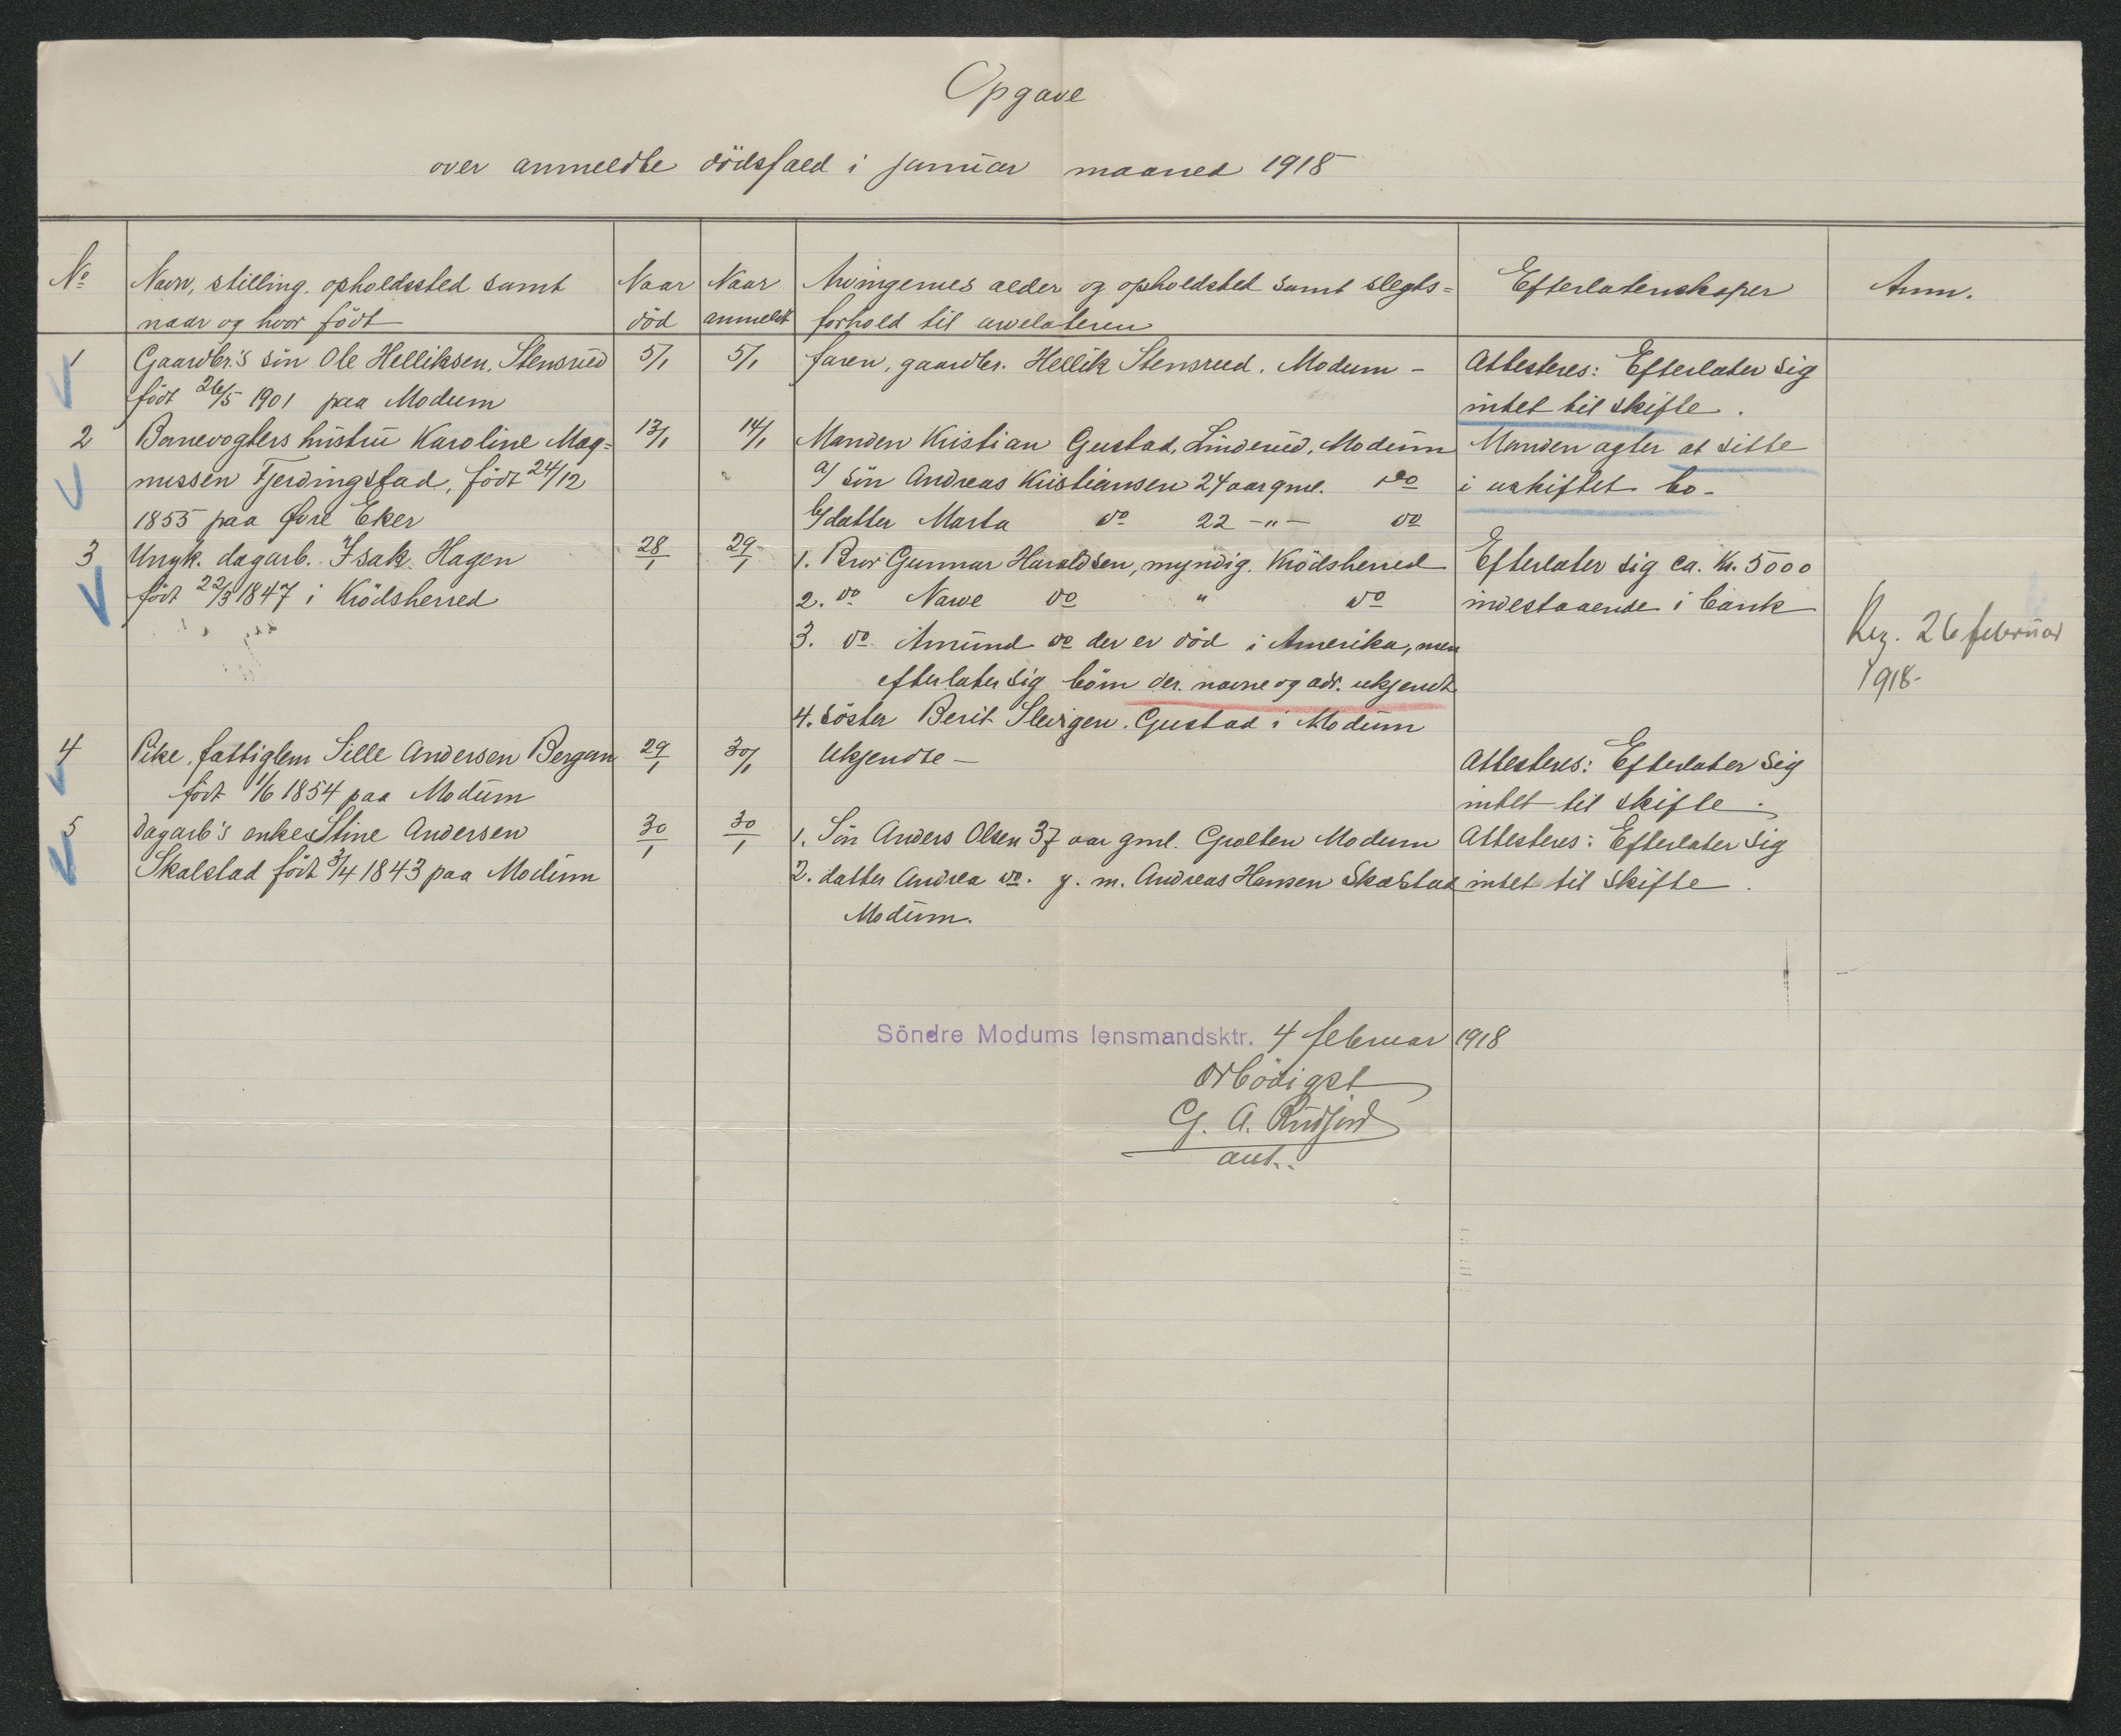 Opgave
over anmeldte dödsfald i januar maaned 1918
No Navn, stilling, opholdssted samt naar og hvor födt
Naar död
Naar anmeldt
Arvingernes alder og opholdsted samt slegts=
forhold til arvelateren
Efterlatenskaper
Anm.
1 Gaardbr.'s sön Ole Helliksen, Stensrud 5/1 5/1 faren, gaardbr. Hellik Stensrud, Modum - Attesteres: Efterlater sig
födt 26/5 1901 paa Modum intet til skifte.
2 Banevogters hustru Karoline Mag= 13/1 14/1 Manden Kristian Gustad, Linderud, Modum Manden agter at sitte
nussen Fjerdingstad, födt 24/12 a/ sön Andreas Kristiansen 24 aar gml. do i uskiftet bo -
1855 paa Øvre Eker b/ datter Marta do 22 -"- do
3 Ungk. dagarb. Isak Hagen 28/1 29/1 1. Bror Gunnar Haraldsen, myndig. Krödsherred Efterlater sig ca. Kr. 5000
födt 22/3 1847 i Krödsherred 2. do Narve do " do indestaaende i bank
3. do Amund do der er död i Amerika, men
efterlater sig börn der. navne og adr. ukjendt
Reg. 26 februar
1918-
4. söster Berit Gustad i Modum
4 Pike, fattiglem Sille Andersen Bergan 29/1 30/1 Ukjendte - Attesteres: Efterlater sig
födt 1/6 1854 paa Modum intet til skifte.
5 Dagarb's enke Stine Andersen 30/1 30/1 1. Sön Anders Olsen 37 aar gml. Modum Attesteres: Efterlater sig
Skalstad födt 3/4 1843 paa Modum 2. datter Andrea do. g. m. Andreas Hansen Skalstad intet til skifte.
Modum.
Söndre Modums lensmandsktr. 4 februar 1918
Ærbödigst
G. A. Rudfjord
aut.